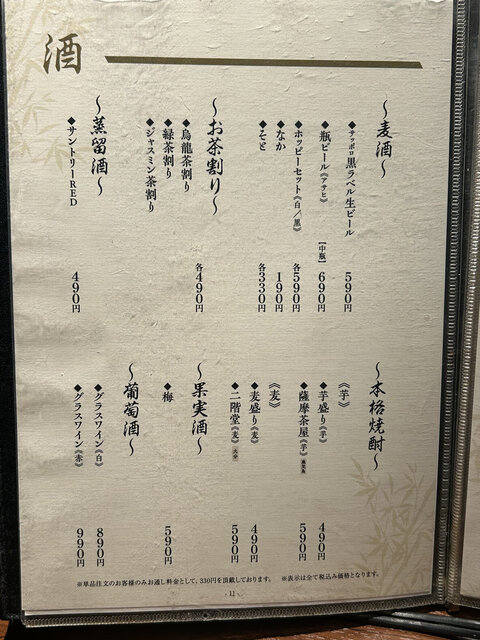 酒
〜麦酒〜
◆サッポロ黒ラベル生ビール 590円
◆瓶ビール《アサヒ》【中瓶】 690円
◆ホッピーセット《白／黒》 各590円
◆なか 190円
◆そと 各330円
〜お茶割り〜
各490円
◆烏龍茶割り
◆緑茶割り
◆ジャスミン茶割り
〜蒸留酒〜
◆サントリーRED 490円
〜本格焼酎〜
《芋》
◆芋盛り《芋》 490円
◆薩摩茶屋《芋》 590円
《麦》
◆麦盛り《麦》 490円
◆二階堂《麦》 大分 590円
〜果実酒〜
◆梅 590円
〜葡萄酒〜
◆グラスワイン《白》 890円
◆グラスワイン《赤》 990円
※単品注文のお客様のみお通し料金として、330円を頂戴しております。 ※表示は全て税込み価格となります。
12